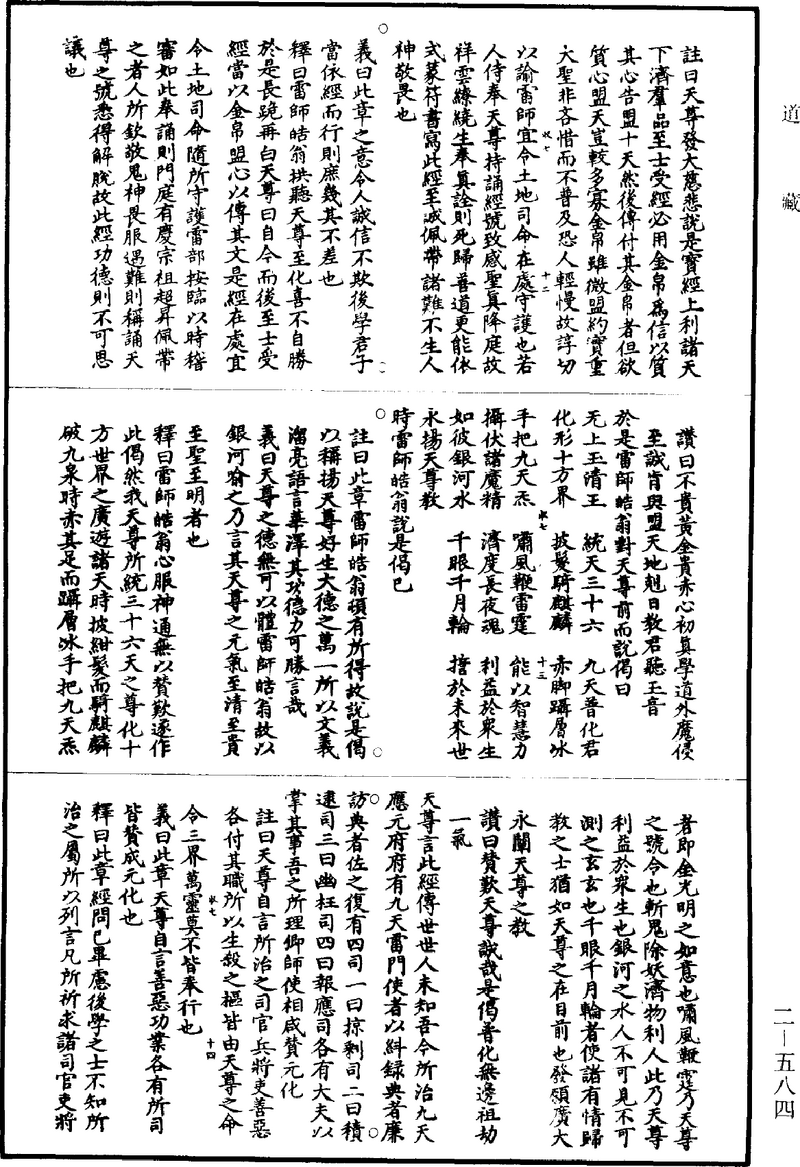 道藏
註曰天尊發大慈悲說是寶經上利諸天
下濟羣品至士受經必用金帛為信以質
其心告盟十天然後傳付其金帛者但欲
質心盟天豈較多寡金帛雖微盟約實重
大聖非吝惜而不普及恐人輕慢故諄切
以諭雷師宜令土地司命在處守護也若
人侍奉天尊持誦經號致感聖真降庭故
祥雲繚繞生奉真詮則死歸善道更能依
式篆符書寫此經至誠佩帶諸難不生人
神敬畏也
義曰此章之意令人誠信不欺後學君子
當依經而行則庶幾其不差也
釋曰雷師皓翁拱聽天尊至化喜不自勝
於是長跪再白天尊曰自今而後至士受
經當以金帛盟心以傳其文是經在處宜
令土地司命隨所守護雷部按臨以時稽
審如此奉誦則門庭有慶宗祖超昇佩帶
之者人所欽敬鬼神畏服遇難則稱誦天
尊之號悉得解脫故此經功德則不可思
議也
讚曰不貴黃金貴赤心初真學道外魔侵
至誠肯與盟天地剋日教君聽玉音
於是雷師皓翁對天尊前而說偈曰
无上玉清王　統天三十六　九天普化君
化形十方界　披髮騎麒麟　赤脚躡層冰
手把九天炁　嘯風鞭雷霆　能以智慧力
攝伏諸魔精　濟度長夜魂　利益於眾生
如彼銀河水　千眼千月輪　誓於未來世
永揚天尊教
時雷師皓翁說是偈已
註曰此章雷師皓翁頓有所得故說是偈
以稱揚天尊好生大德之萬一所以文義
溜亮語言華澤其功德力可勝言哉
義曰天尊之德無可以體雷師皓翁故以
銀河喻之乃言其天尊之元氣至清至貴
至聖至明者也
釋曰雷師皓翁心服神通無以贊歎遂作
此偈然我天尊所統三十六天之尊化十
方世界之廣遊諸天時披紺髮而騎麒麟
破九泉時赤其足而躡層冰手把九天炁
者即金光明之如意也嘯風鞭霆乃天尊
之號令也斬鬼除妖濟物利人此乃天尊
利益於眾生也銀河之水人不可見不可
測之玄玄也千眼千月輪者使諸有情歸
教之士猶如天尊之在目前也發願廣大
永闡天尊之教
讚曰贊歎天尊誠哉是偈普化無邊祖劫
一氣
天尊言此經傳世世人未知吾今所治九天
應元府府有九天雷門使者以糾錄典者廉
訪典者佐之復有四司一曰掠剩司二曰積
逮司三曰幽枉司四曰報應司各有大夫以
掌其事吾之所理卿師使相咸贊元化
註曰天尊自言所治之司官兵將吏善惡
各付其職所以生殺之樞皆由天尊之命
令三界萬靈莫不皆奉行也
義曰此章天尊自言善惡功業各有所司
皆贊成元化也
釋曰此章經問已畢慮後學之士不知所
治之屬所以列言凡所祈求諸司官吏將
二—五八四